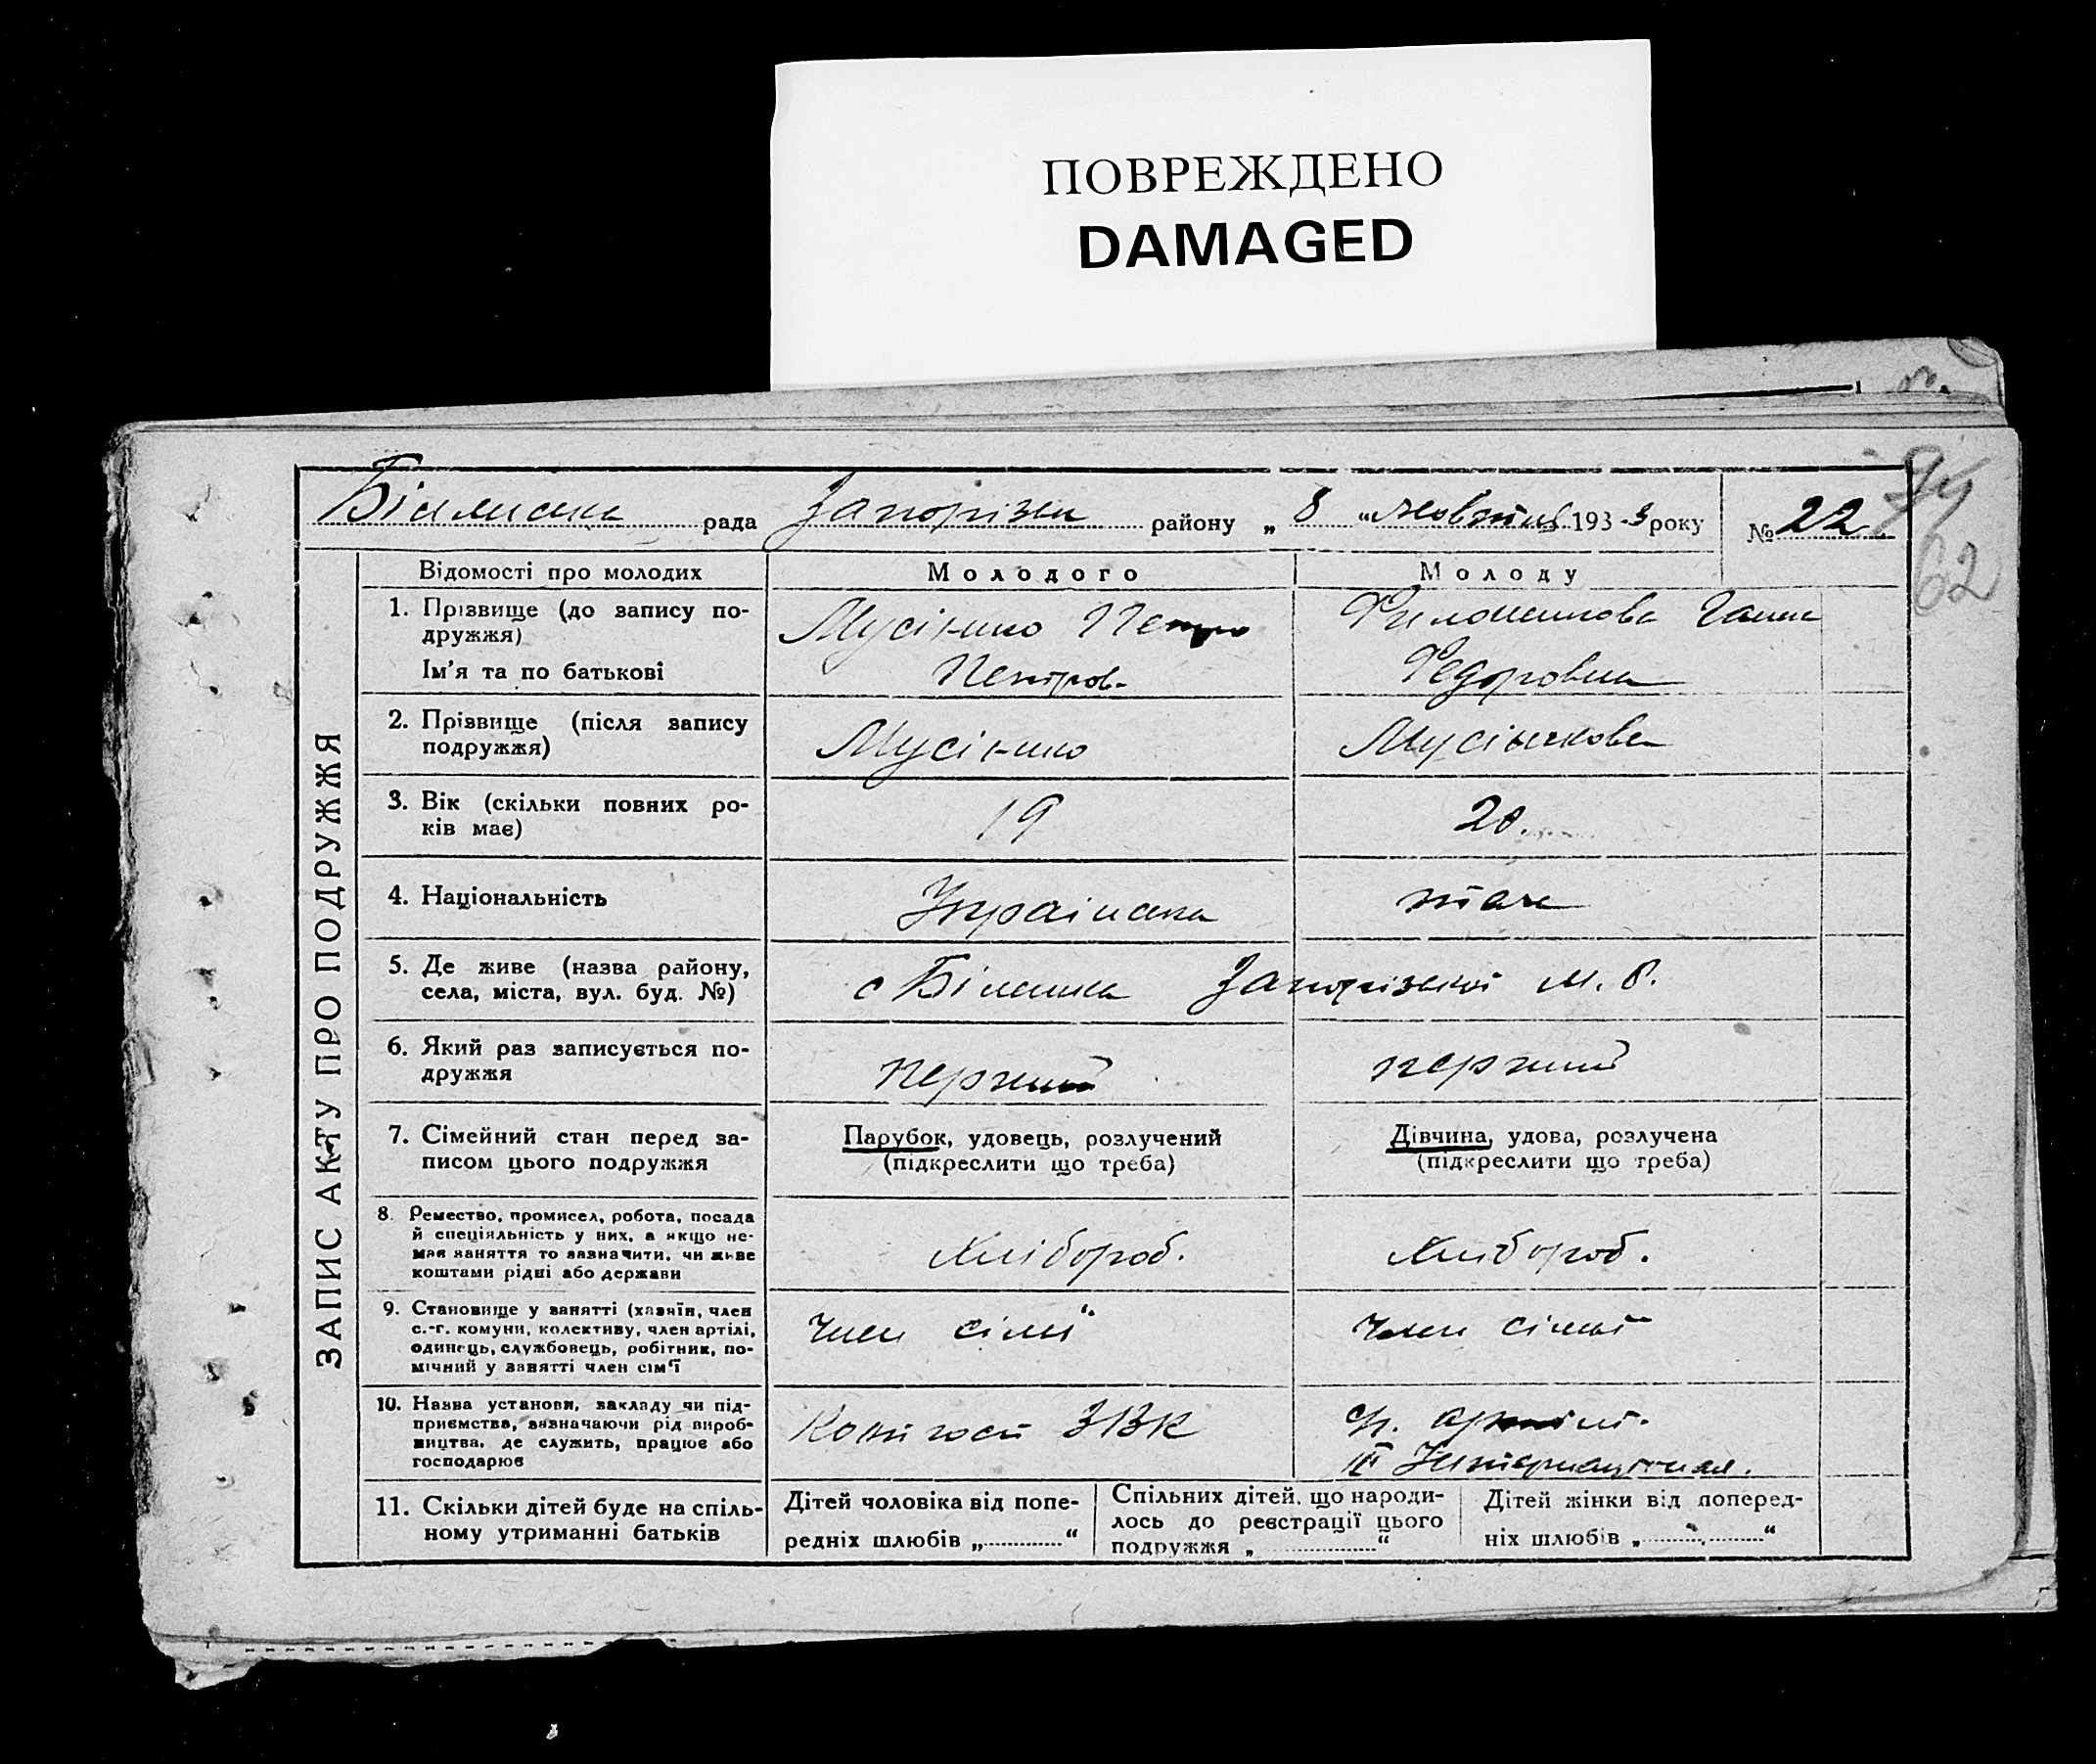 ПОВРЕЖДЕНО
DAMAGED
рада район у „ 8 “ жовтня 1933 року № 22
62
ЗАПИС АКТУ ПРО ПОДРУЖЖЯ
Відомості про молодих
Молодого
Молоду
1. Прізвище (до запису по-
дружжя)
Ім'я та по батькові
Петро
Петров.
Ганна
Федоровна
2. Прізвище (після запису
подружжя)
3. Вік (скільки повних ро-
ків має)
19
20.
4. Національність
Українська
тоже
5. Де живе (назва району,
села, міста, вул. буд. №)
с Біленька Запорізької м. р.
6. Який раз записується по-
дружжя
перший
перший
7. Сімейний стан перед за-
писом цього подружжя
Парубок, удовець, розлучений
(підкреслити що треба)
Дівчина, удова, розлучена
(підкреслити що треба)
8. Ремество, промисел, робота, посада
й спеціяльність у них, а якщо не-
має заняття то зазначити, чи живе
коштами рідні або держави
Хлібороб.
Хлібороб.
9. Становище у занятті (хазяїн, член
с.-г. комуни, колективу, член артілі,
одинець, службовець, робітник, по-
мічний у занятті член сім'ї
Член сімї
Член сімьї
10. Назва установи, закладу чи під-
приємства, зазначаючи рід вироб-
ництва, де служить, працює або
господарює
ЗВК
III Інтернаціонал.
11. Скільки дітей буде на спіль-
ному утриманні батьків
Дітей чоловіка від попе-
редніх шлюбів „ “
Спільних дітей, що народи-
лось до реєстрації цього
подружжя „ “
Дітей жінки від поперед-
ніх шлюбів „ “